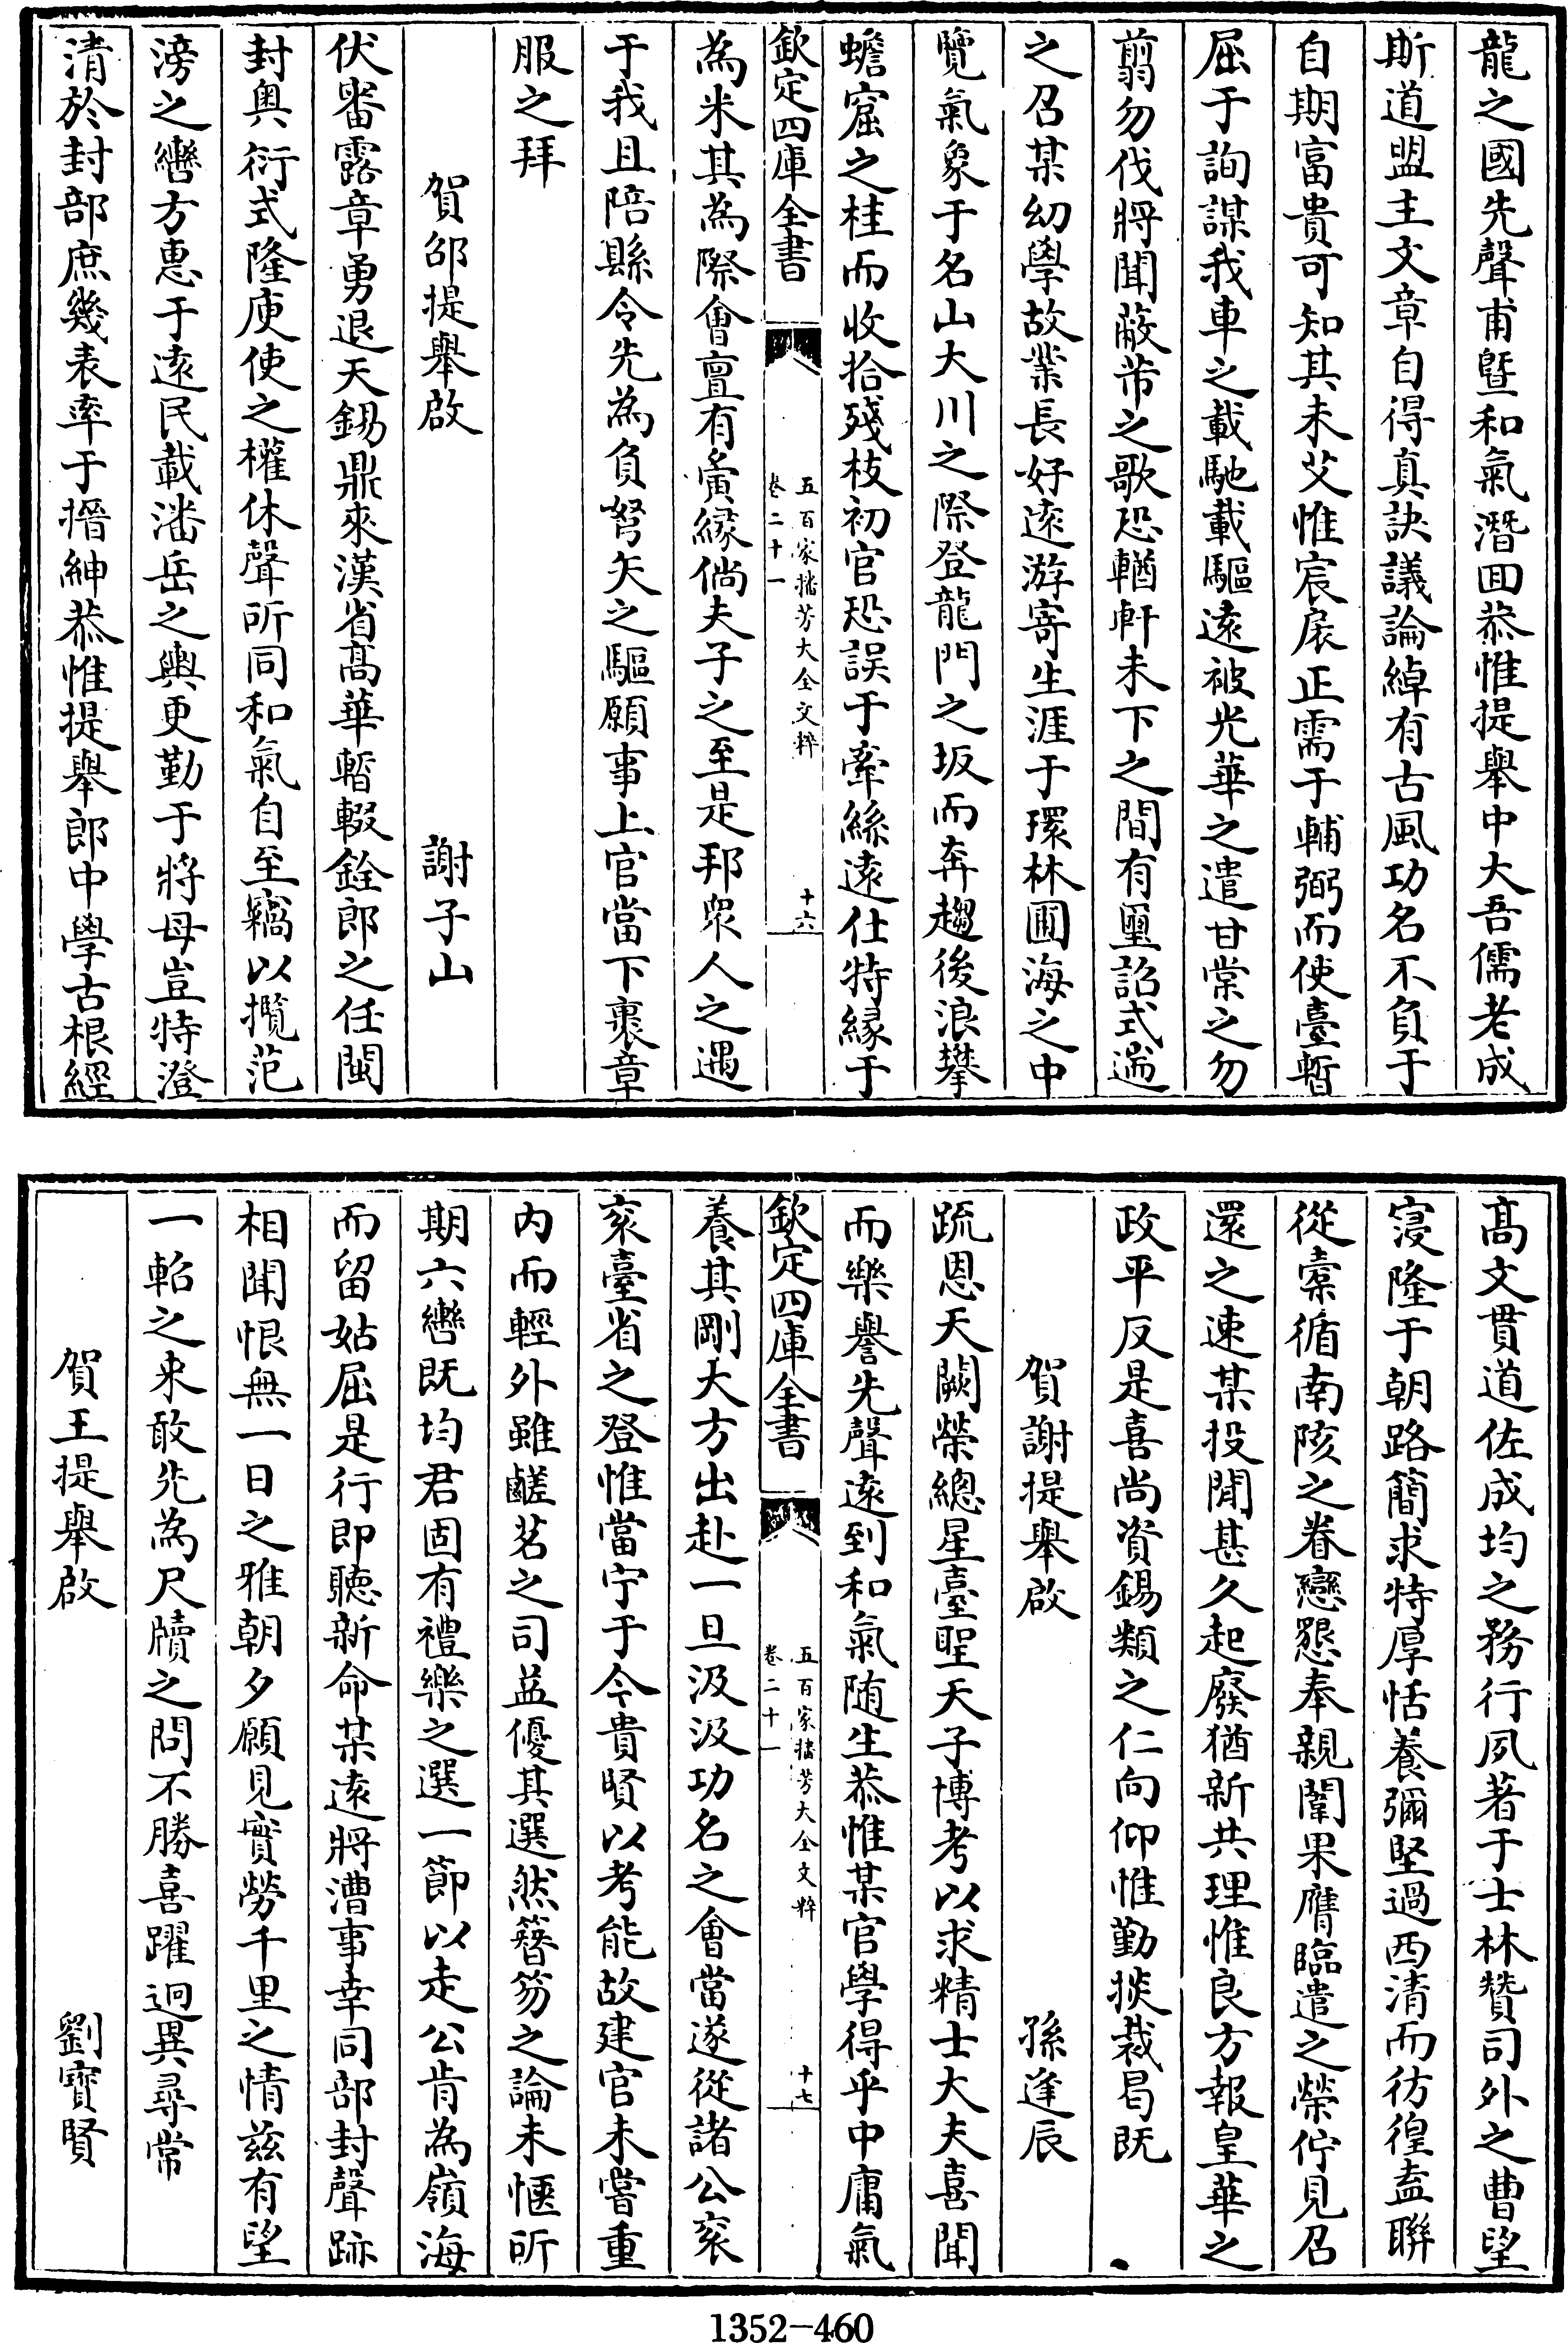 龍之國先聲甫曁和氣潛回恭惟提舉中大吾儒老成
斯道盟主文章自得真訣議論綽有古風功名不負于
自期富貴可知其未艾惟宸扆正需于輔弼而使臺暫
屈于詢謀我車之載馳載驅遠被光華之遣甘棠之勿
翦勿伐將聞蔽芾之歌恐輶軒未下之間有璽詔式遄
之召某幼學故業長好遠游寄生涯于環林圃海之中
覽氣象于名山大川之際登龍門之坂而奔趨後浪攀
蟾窟之桂而收拾殘枝初官恐誤于牽絲遠仕特緣于
欽定四庫全書
五百家播芳大全文粹
卷二十一
十六
為米其為際會亶有夤緣倘夫子之至是邦衆人之遇
于我且陪縣令先為負弩矢之驅願事上官當下裹章
服之拜
賀邵提舉啟
謝子山
伏審露章勇退天錫鼎來漢省髙華暫輟銓郎之任閩
封奥衍式隆庾使之權休聲所同和氣自至竊以攬范
滂之轡方惠于遠民載潘岳之輿更勤于將母豈特澄
清於封部庶幾表率于搢紳恭惟提舉郎中學古根經
髙文貫道佐成均之務行夙著于士林贊司外之曹望
寖隆于朝路簡求特厚恬養彌堅過西清而彷徨盍聯
從橐循南陔之眷戀懇奉親闈果膺臨遣之榮佇見召
還之速某投閒甚久起廢猶新共理惟良方報皇華之
政平反是喜尚資錫類之仁向仰惟勤掞裁曷既
賀謝提舉啟
孫逢辰
疏恩天闕榮總星臺聖天子博考以求精士大夫喜聞
而樂譽先聲遠到和氣随生恭惟某官學得乎中庸氣
欽定四庫全書
五百家播芳大全文粹
卷二十一
十七
養其剛大方出赴一旦汲汲功名之會當遂從諸公衮
衮臺省之登惟當宁于今貴賢以考能故建官未嘗重
内而輕外雖鹺茗之司益優其選然簪笏之論未愜所
期六轡既均君固有禮樂之選一節以走公肯為嶺海
而留姑屈是行即聽新命某遠將漕事幸同部封聲跡
相聞恨無一日之雅朝夕願見實勞千里之情兹有望
一軺之来敢先為尺牘之問不勝喜躍迥異尋常
賀王提舉啟
劉寶賢
1352-460